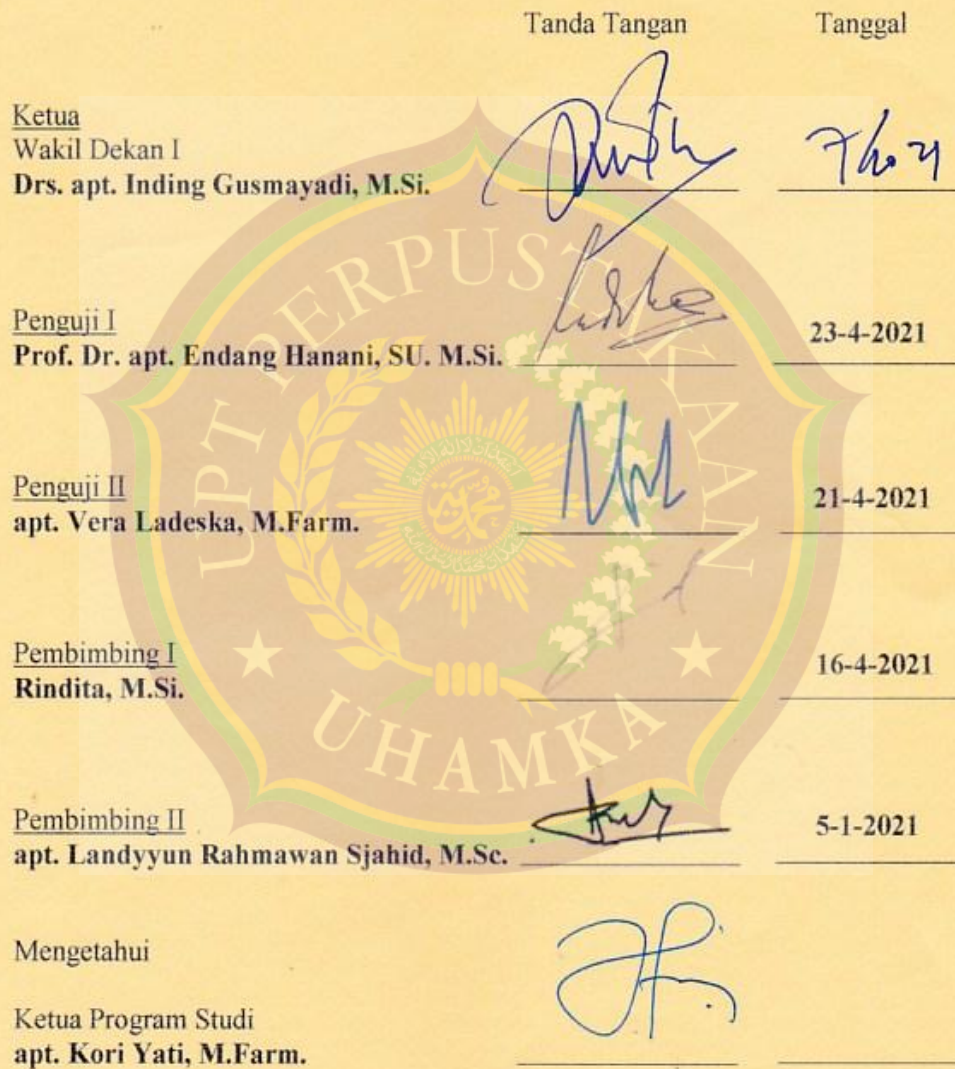 Tanda Tangan Tanggal
Ketua
Wakil Dekan I
Drs. apt. Inding Gusmayadi, M.Si.
Penguji I
Prof. Dr. apt. Endang Hanani, SU. M.Si. 23-4-2021
Penguji II
apt. Vera Ladeska, M.Farm. 21-4-2021
Pembimbing I
Rindita, M.Si. 16-4-2021
Pembimbing II
apt. Landyyun Rahmawan Sjahid, M.Sc. 5-1-2021
Mengetahui
Ketua Program Studi
apt. Kori Yati, M.Farm.
UPT PERPUSTAKAAN
UHAMKA